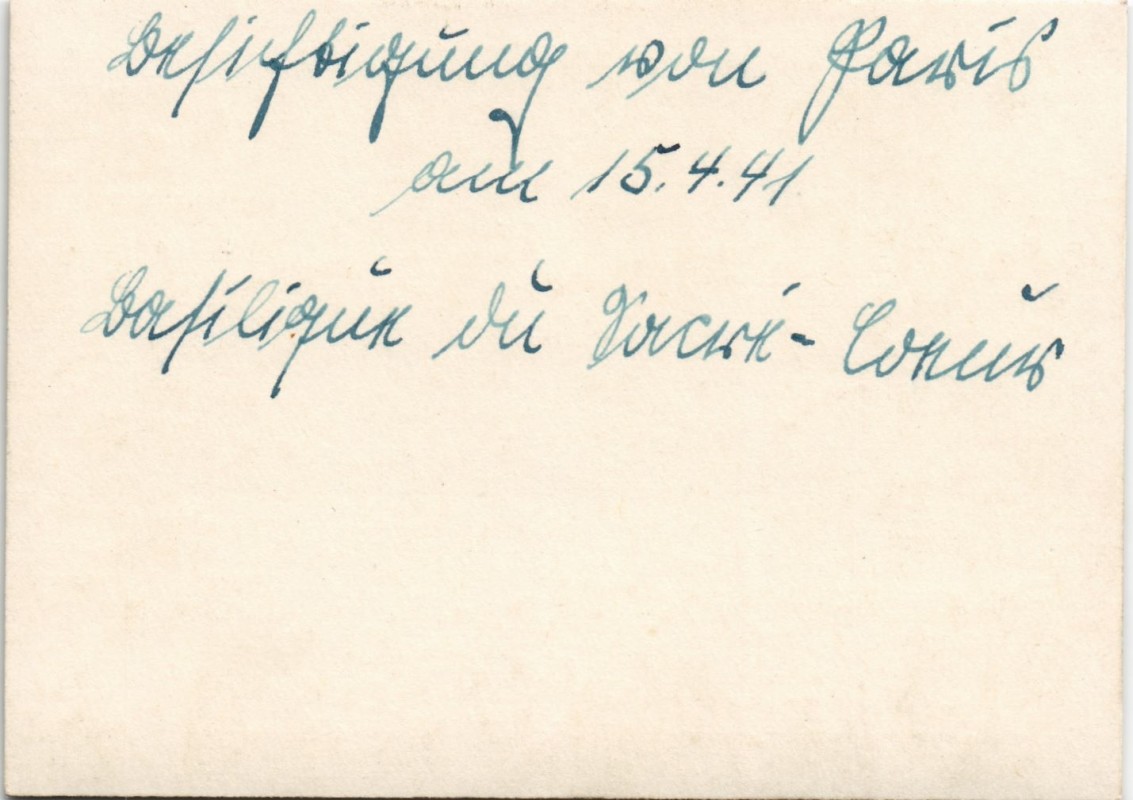 Besichtigung von Paris
am 15.4.41
Basilique du Sacré-Coeur